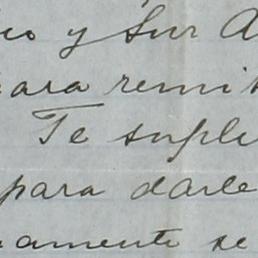 y Sur
para remi
Te suplic
para darle
amente se